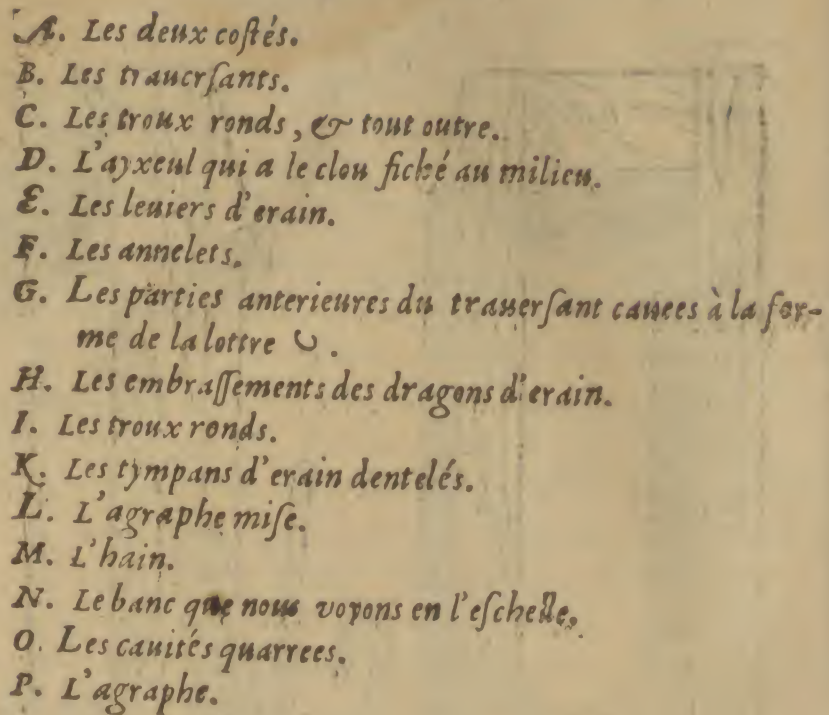 A. Les deux coſtés.
B. Les trauerſants.
C. Les troux ronds, & tout outre.
D. L'ayxeul qui a le clou fiché au milieu.
E. Les leuiers d'erain.
F. Les annelets.
G. Les parties anterieures du trauerſant cauees à la for-
me de la lottre ᴗ.
H. Les embraſſements des dragons d'erain.
I. Les troux ronds.
K. Les tympans d'erain dentelés.
L. L'agraphe miſe.
M. L'hain.
N. Le banc que nous voyons en l'eſchelle,
O. Les cauités quarrees.
P. L'agraphe.